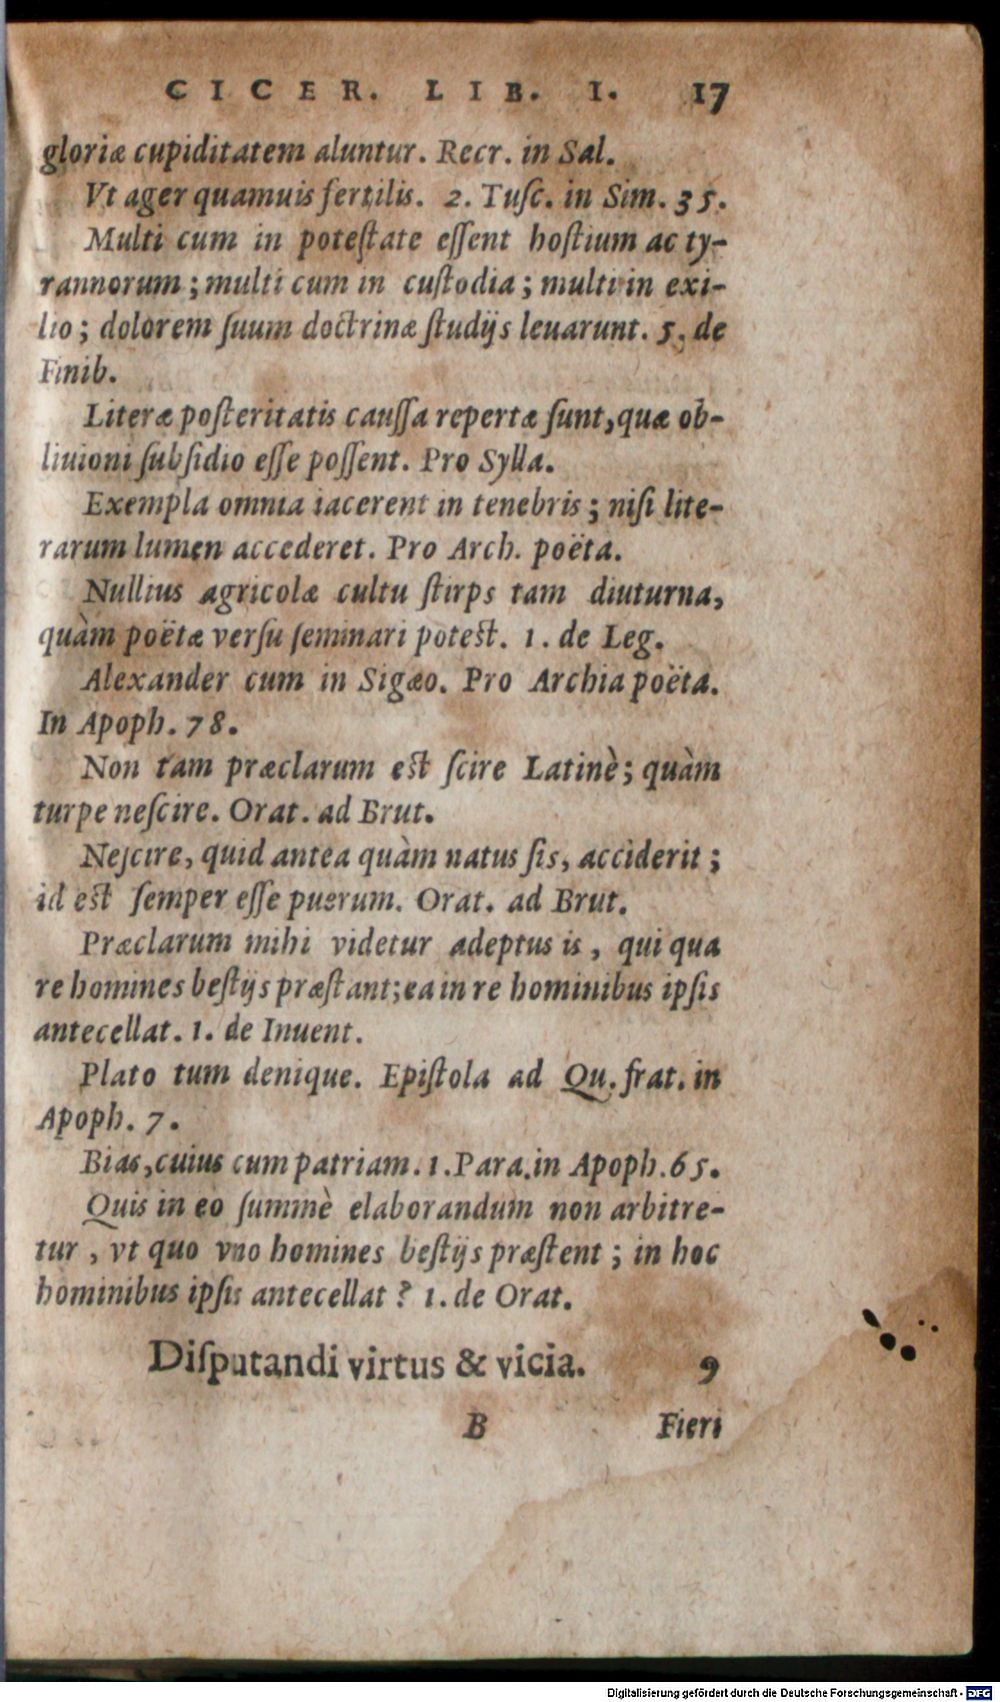 CICER. LIB. I. 17
gloriæ cupiditatem aluntur. Recr. in Sal.
Vt ager quamuis fertilis. 2. Tuſc. in Sim. 35.
Multi cum in poteſtate eſſent hoſtium ac ty-
rannorum; multi cum in cuſtodia; multi in exi-
lio; dolorem ſuum doctrinæ ſtudijs leuarunt. 5. de
Finib.
Literæ poſteritatis cauſſa repertæ ſunt, quæ ob-
liuioni ſubſidio eſſe poſſent. Pro Sylla.
Exempla omnia iacerent in tenebris; niſi lite-
rarum lumen accederet. Pro Arch. poëta.
Nullius agricolæ cultu ſtirps tam diuturna,
quàm poëtæ verſu ſeminari potest. 1. de Leg.
Alexander cum in Sigæo. Pro Archia poëta.
In Apoph. 78.
Non tam præclarum est ſcire Latinè; quàm
turpe neſcire. Orat. ad Brut.
Neſcire, quid antea quàm natus ſis, acciderit;
id est ſemper eſſe puerum. Orat. ad Brut.
Præclarum mihi videtur adeptus is, qui qua
re homines beſtijs præſtant; ea in re hominibus ipſis
antecellat. 1. de Inuent.
Plato tum denique. Epiſtola ad Qu. frat. in
Apoph. 7.
Bias, cuius cum patriam. 1. Para. in Apoph. 65.
Quis in eo ſummè elaborandum non arbitre-
tur, vt quo vno homines beſtijs præſtent; in hoc
hominibus ipſis antecellat? 1. de Orat.
Diſputandi virtus & vicia. 9
B Fieri
Digitalisierung gefördert durch die Deutsche Forschungsgemeinschaft - DFG